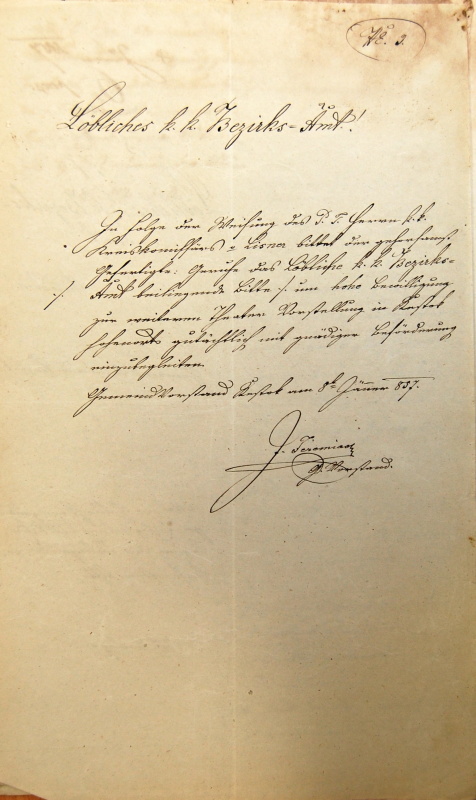 No. 3.
Löbliches k. k. Bezirks=Amt!
In Folge der Weisung des P. T. Herrn k. k.
Kreiskommissärs v Lisner bittet der gehorsamst
Gefertigte: Geruhe das Löbliche k. k. Bezirks=
./. Amt beiliegende Bitte /. um hohe Bewilligung
zur weiteren Theater Vorstellung in
hohenorts gutächtlich mit gnädiger Beförderung
einzubegleiten.
Gemeind Vorstand am 8t Jänner 857.
J. Jeremias
G. Vorstand.